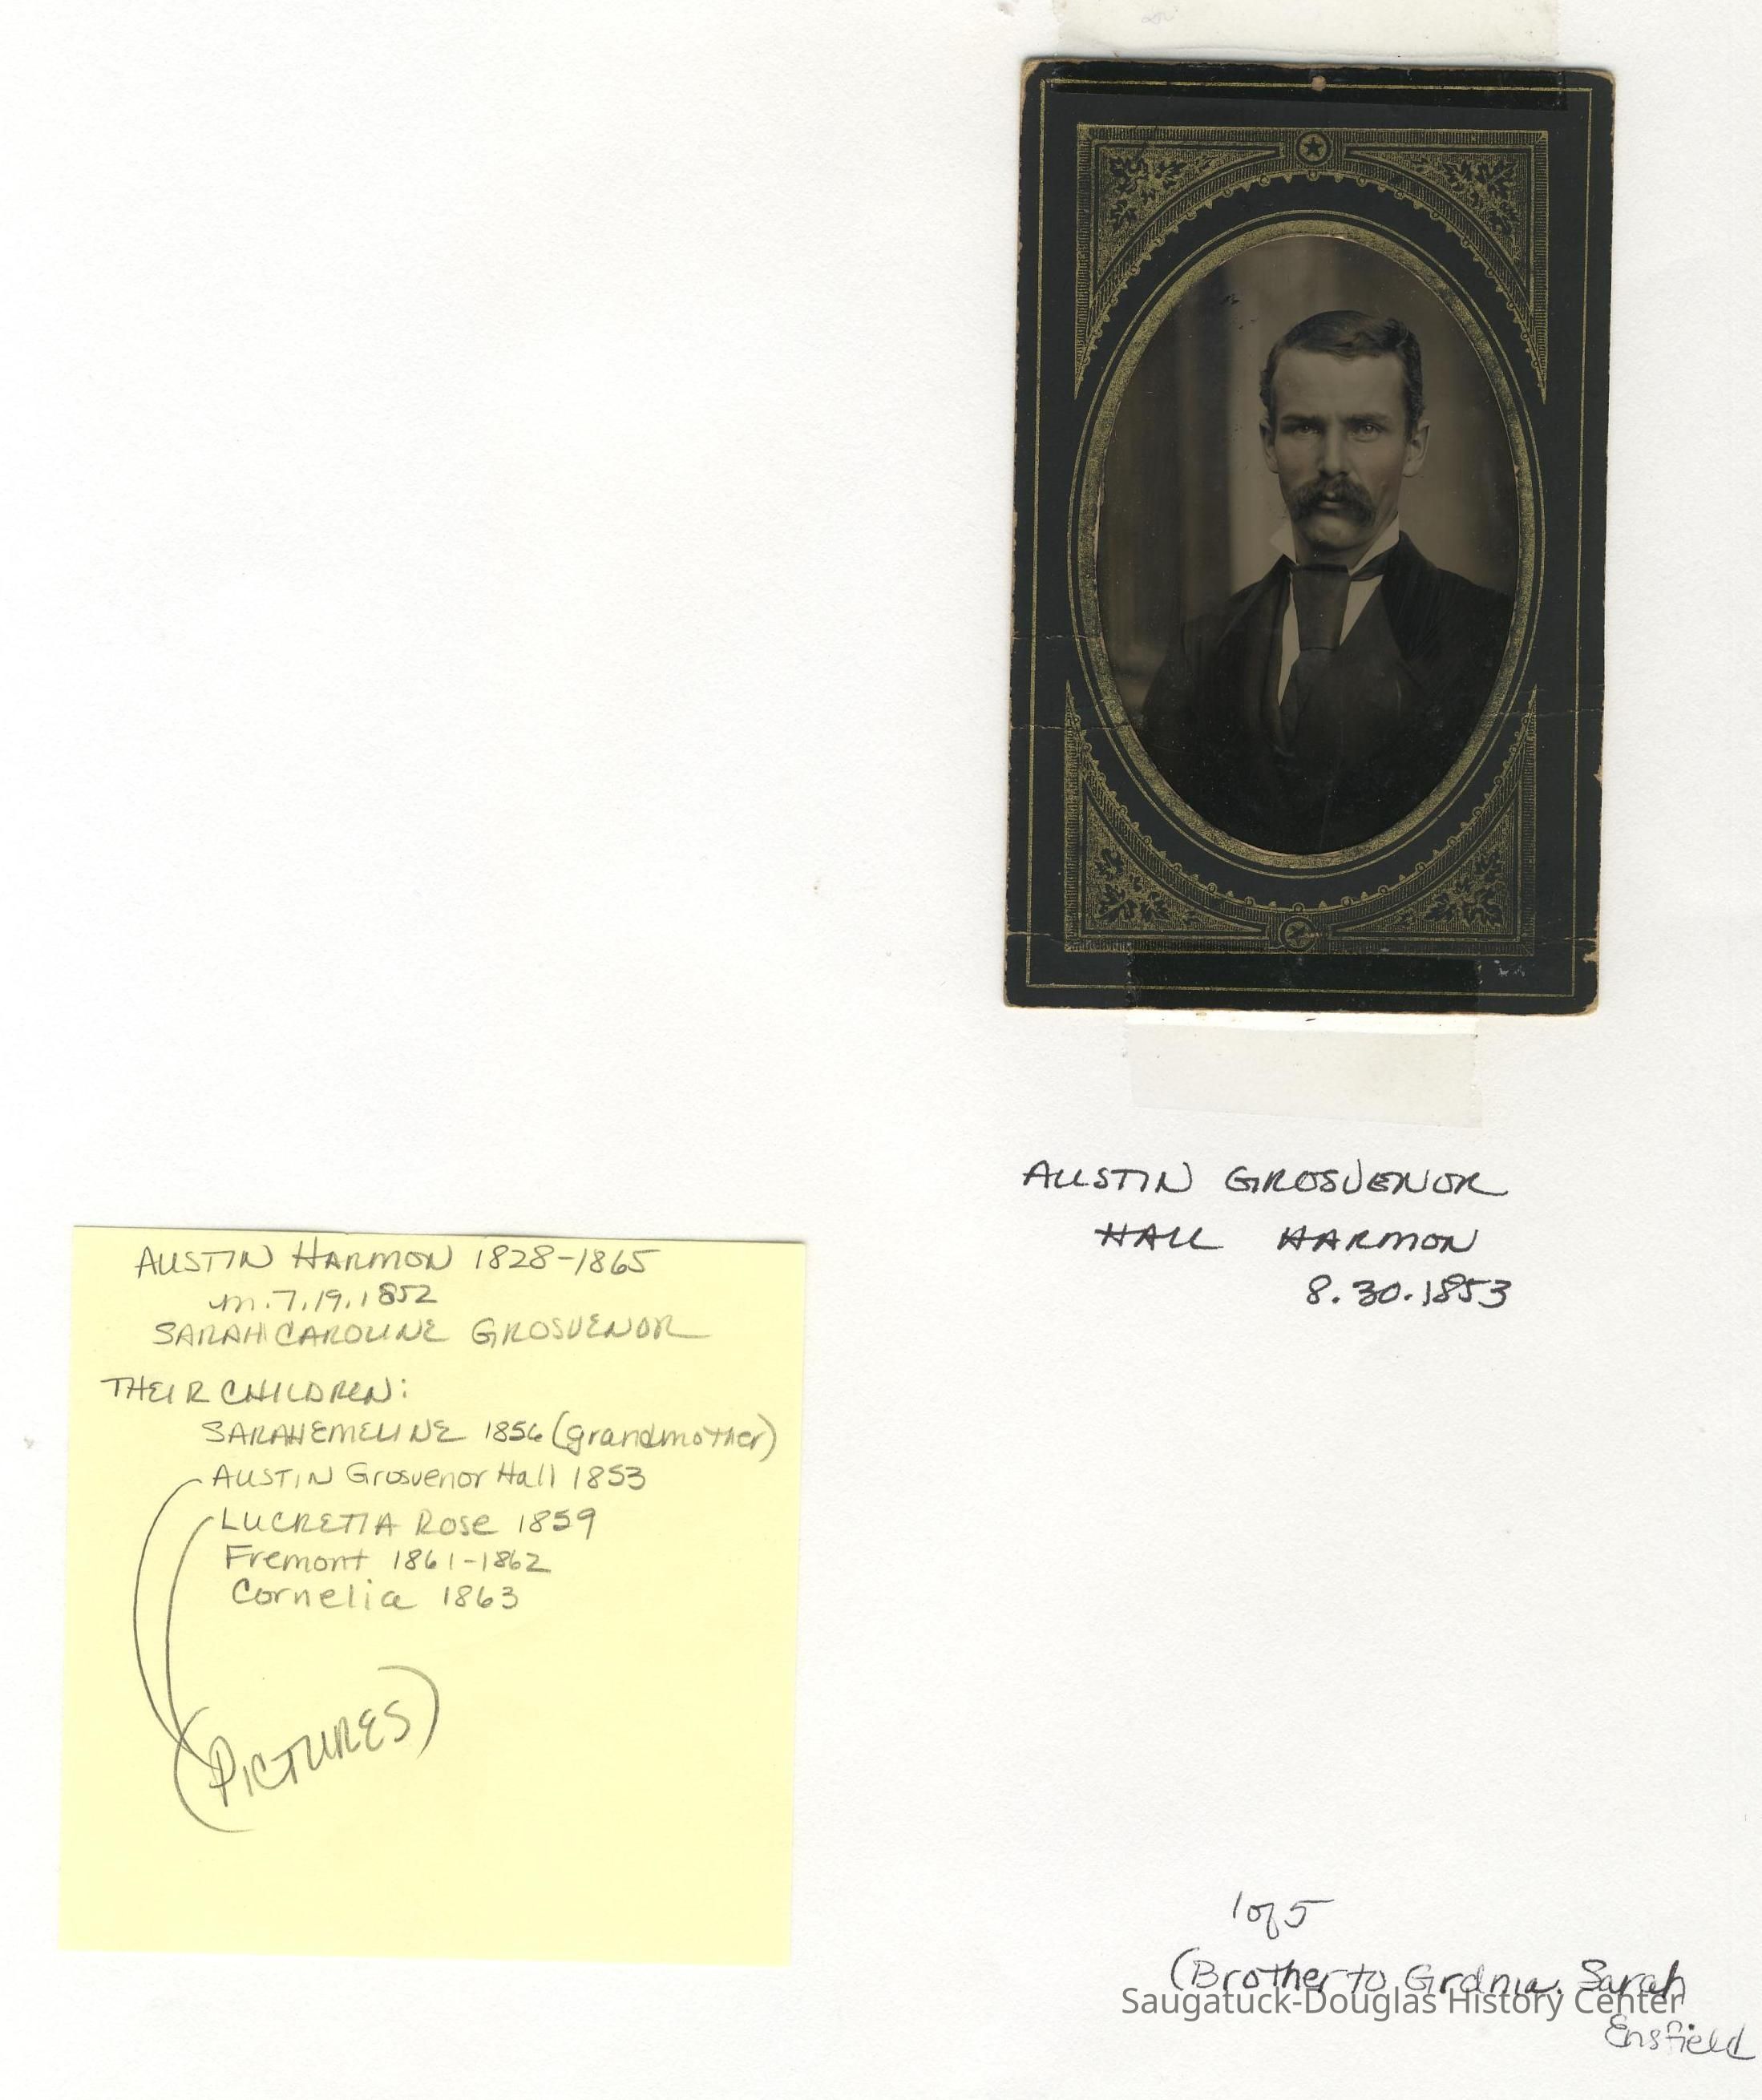 AUSTIN GROSVENOR
HALL HARMON
8.30.1853
AUSTIN HARMON 1828-1865
m. 7.19.1852
SARAH CAROLINE GROSVENOR
THEIR CHILDREN:
SARAH EMELINE 1856 (grandmother)
AUSTIN Grosvenor Hall 1853
LUCRETIA Rose 1859
Fremont 1861-1862
Cornelia 1863
(PICTURES)
1 of 5
(Brother to Grdma. Sarah
Ensfield
Saugatuck-Douglas History Center